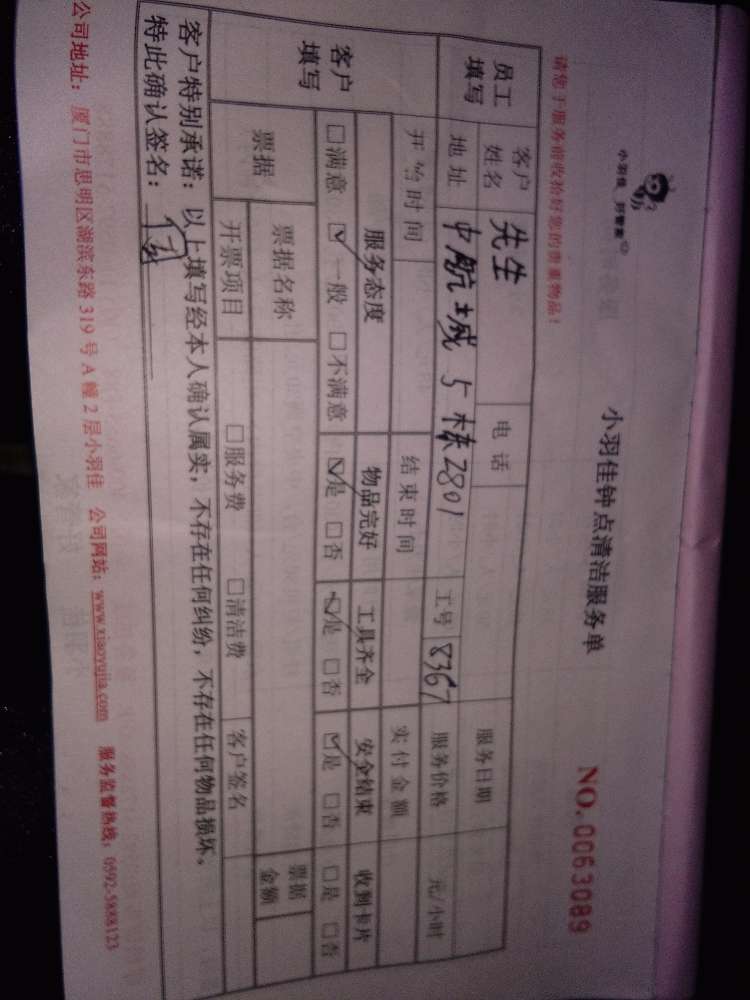 小羽佳 好管家
小羽佳钟点清洁服务单
NO. 0063089
请您于服务前收拾好您的贵重物品！
员工填写
客户姓名 先生 电话 服务日期
地址 中航城5栋2801 工号 8367 服务价格 元/小时
开始时间 结束时间 实付金额
客户填写
服务态度 物品完好 工具齐全 安全结束 收到卡片
□满意 ☑一般 □不满意 ☑是 □否 ☑是 □否 ☑是 □否 □是 □否
票据 票据名称 票据金额
开票项目 □服务费 □清洁费 客户签名
客户特别承诺：以上填写经本人确认属实，不存在任何纠纷，不存在任何物品损坏。
特此确认签名：
公司地址：厦门市思明区湖滨东路319号A幢2层小羽佳 公司网站：www.xiaoyujia.com 服务监督热线：0592-5888123